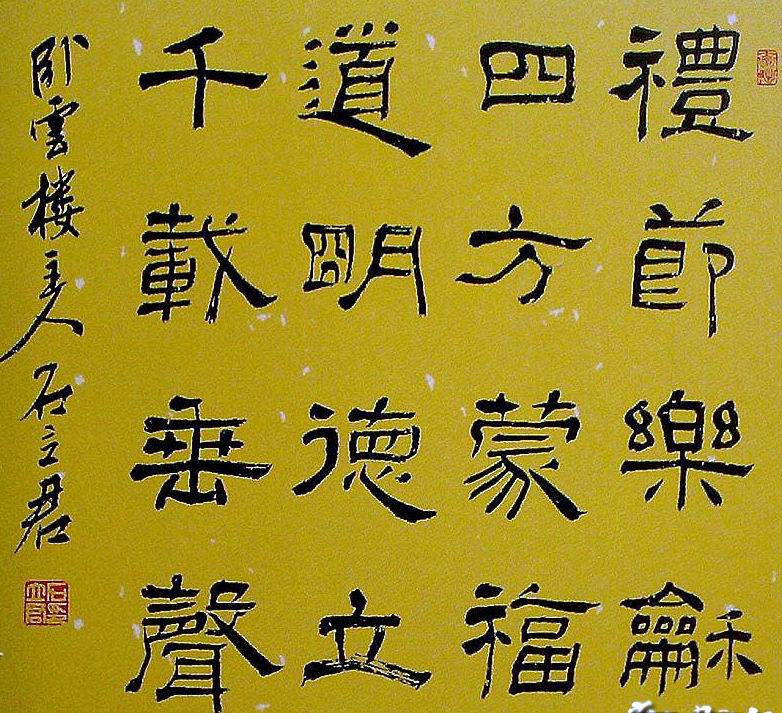 禮節樂龢
四方蒙福
道明德立
千載垂聲
卧雲樓主人石立君